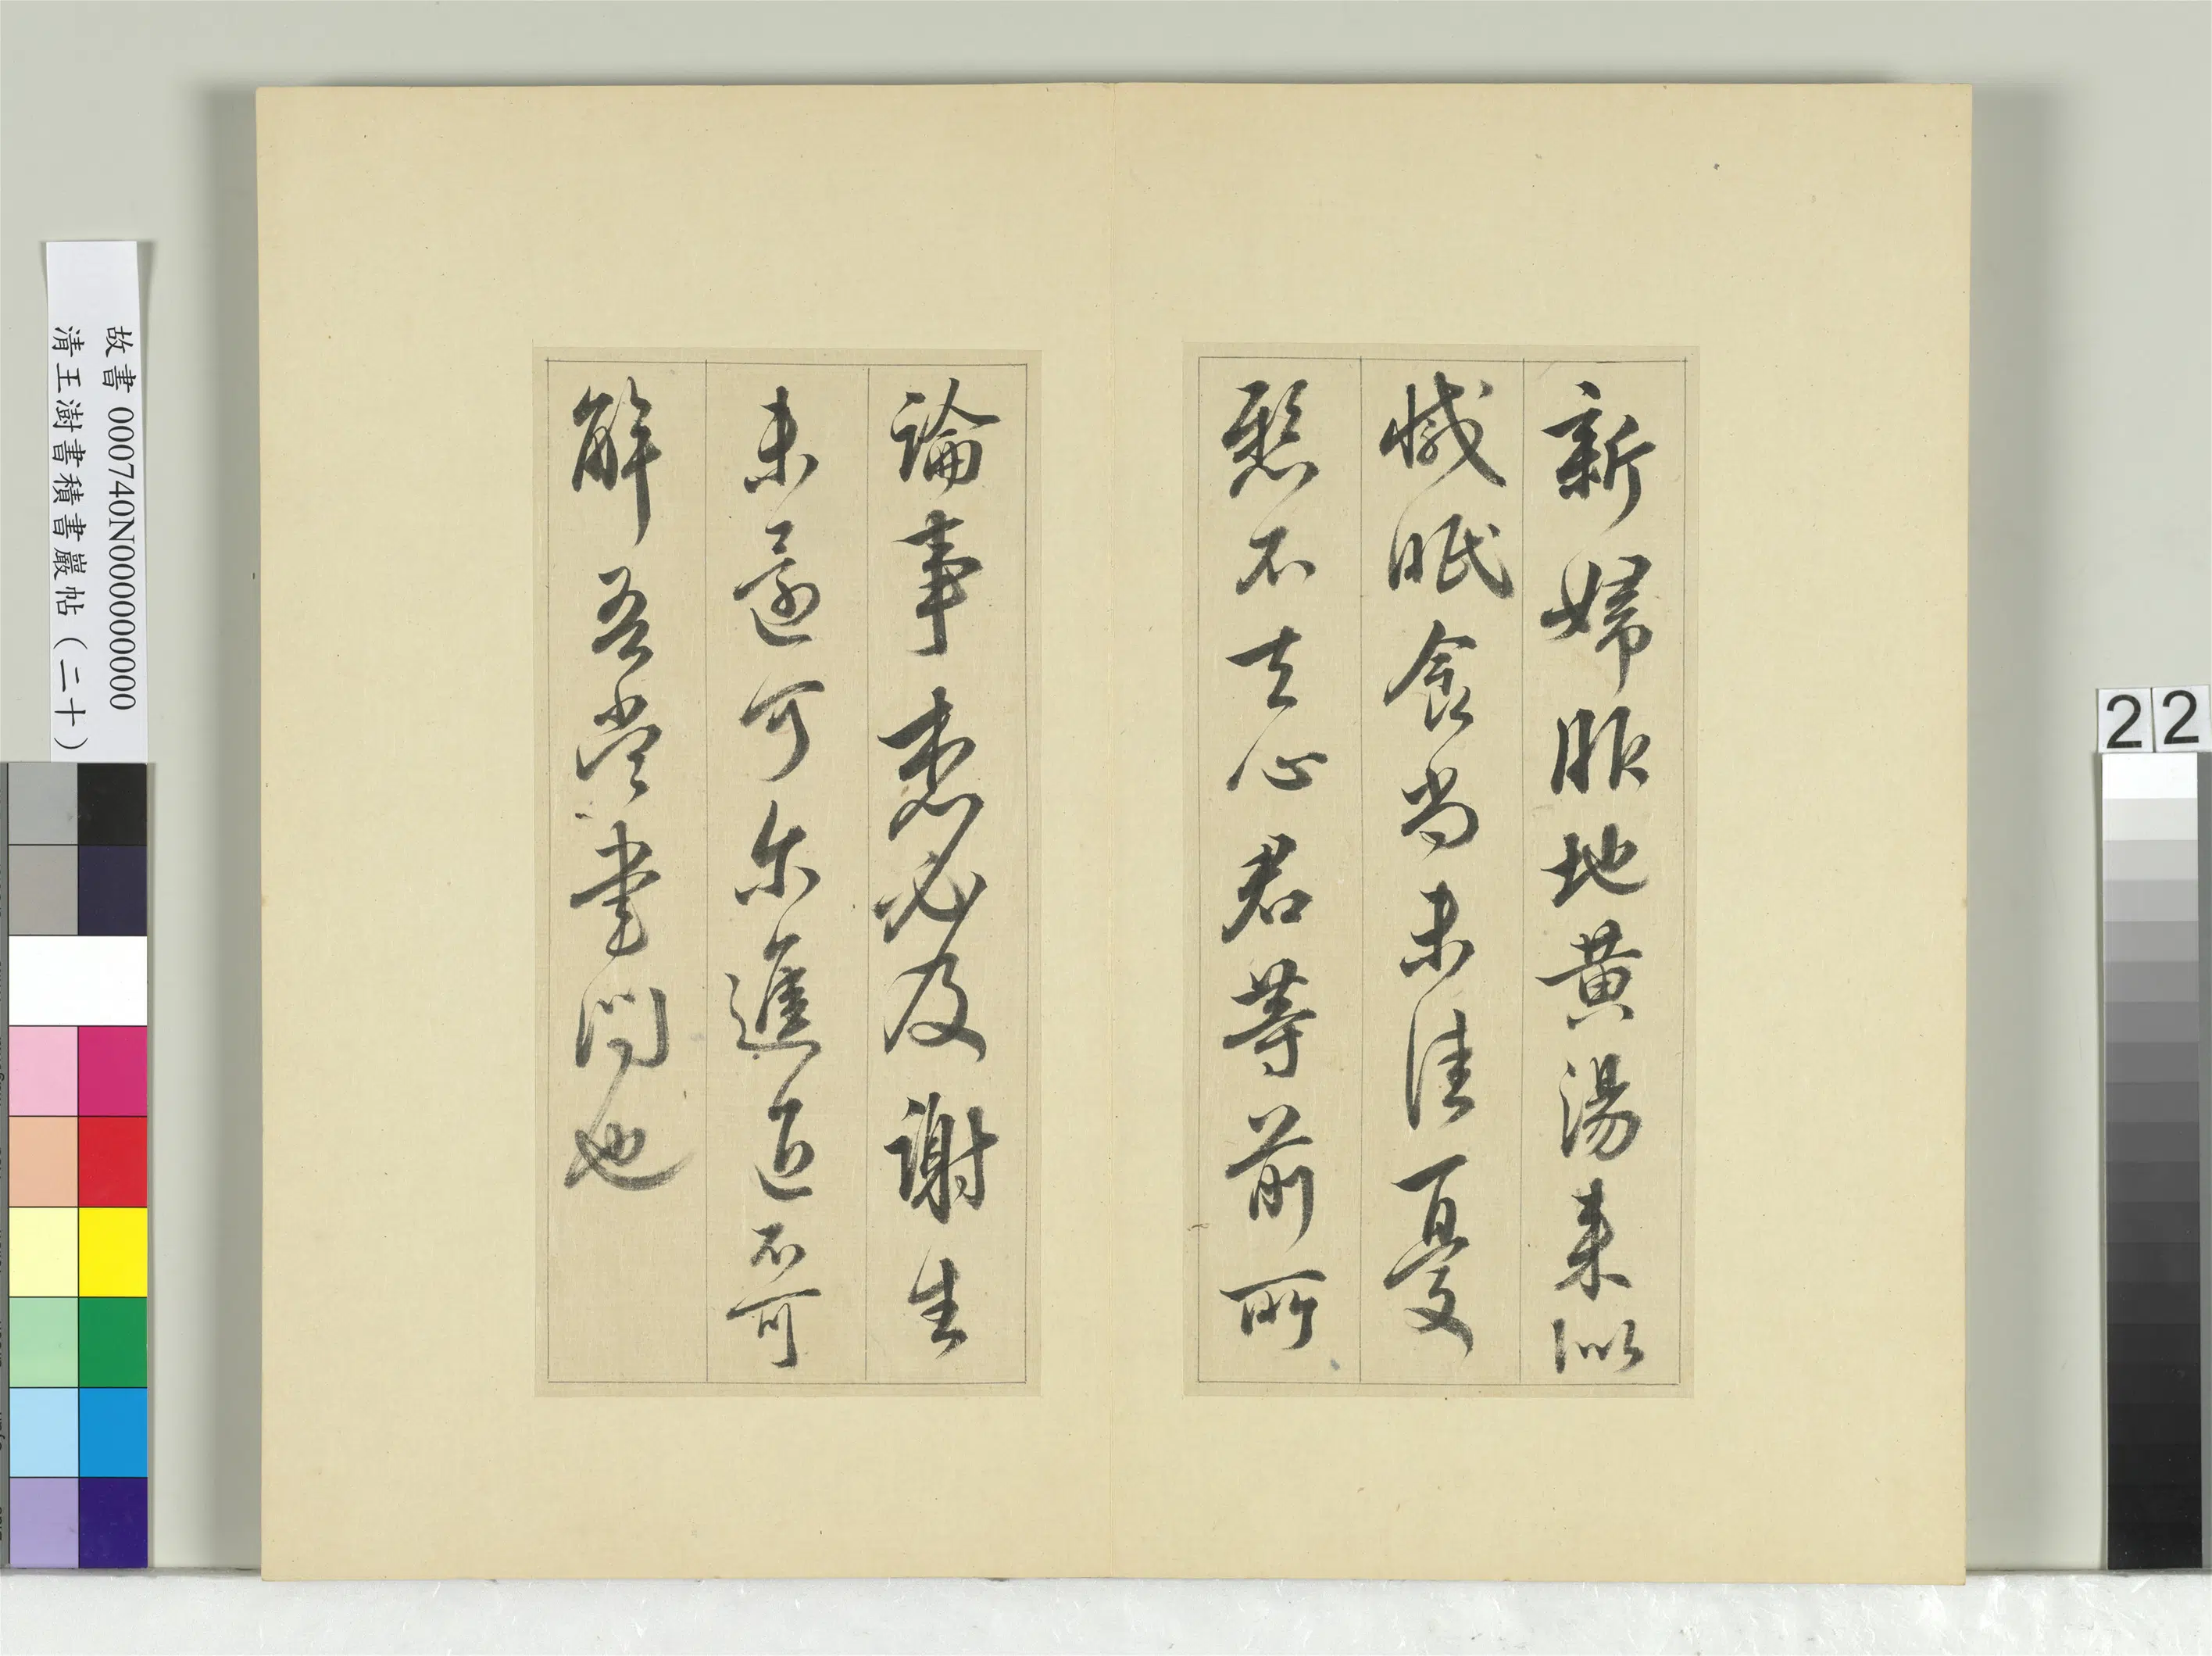 新婦服地黃湯来似
慽眠食尚未佳憂
懸不去心君等前所
論事想必及謝生
未還可尔進退不可
解吾當書問也
故書 000740N000000000
清王澍書積書巖帖（二十）
22